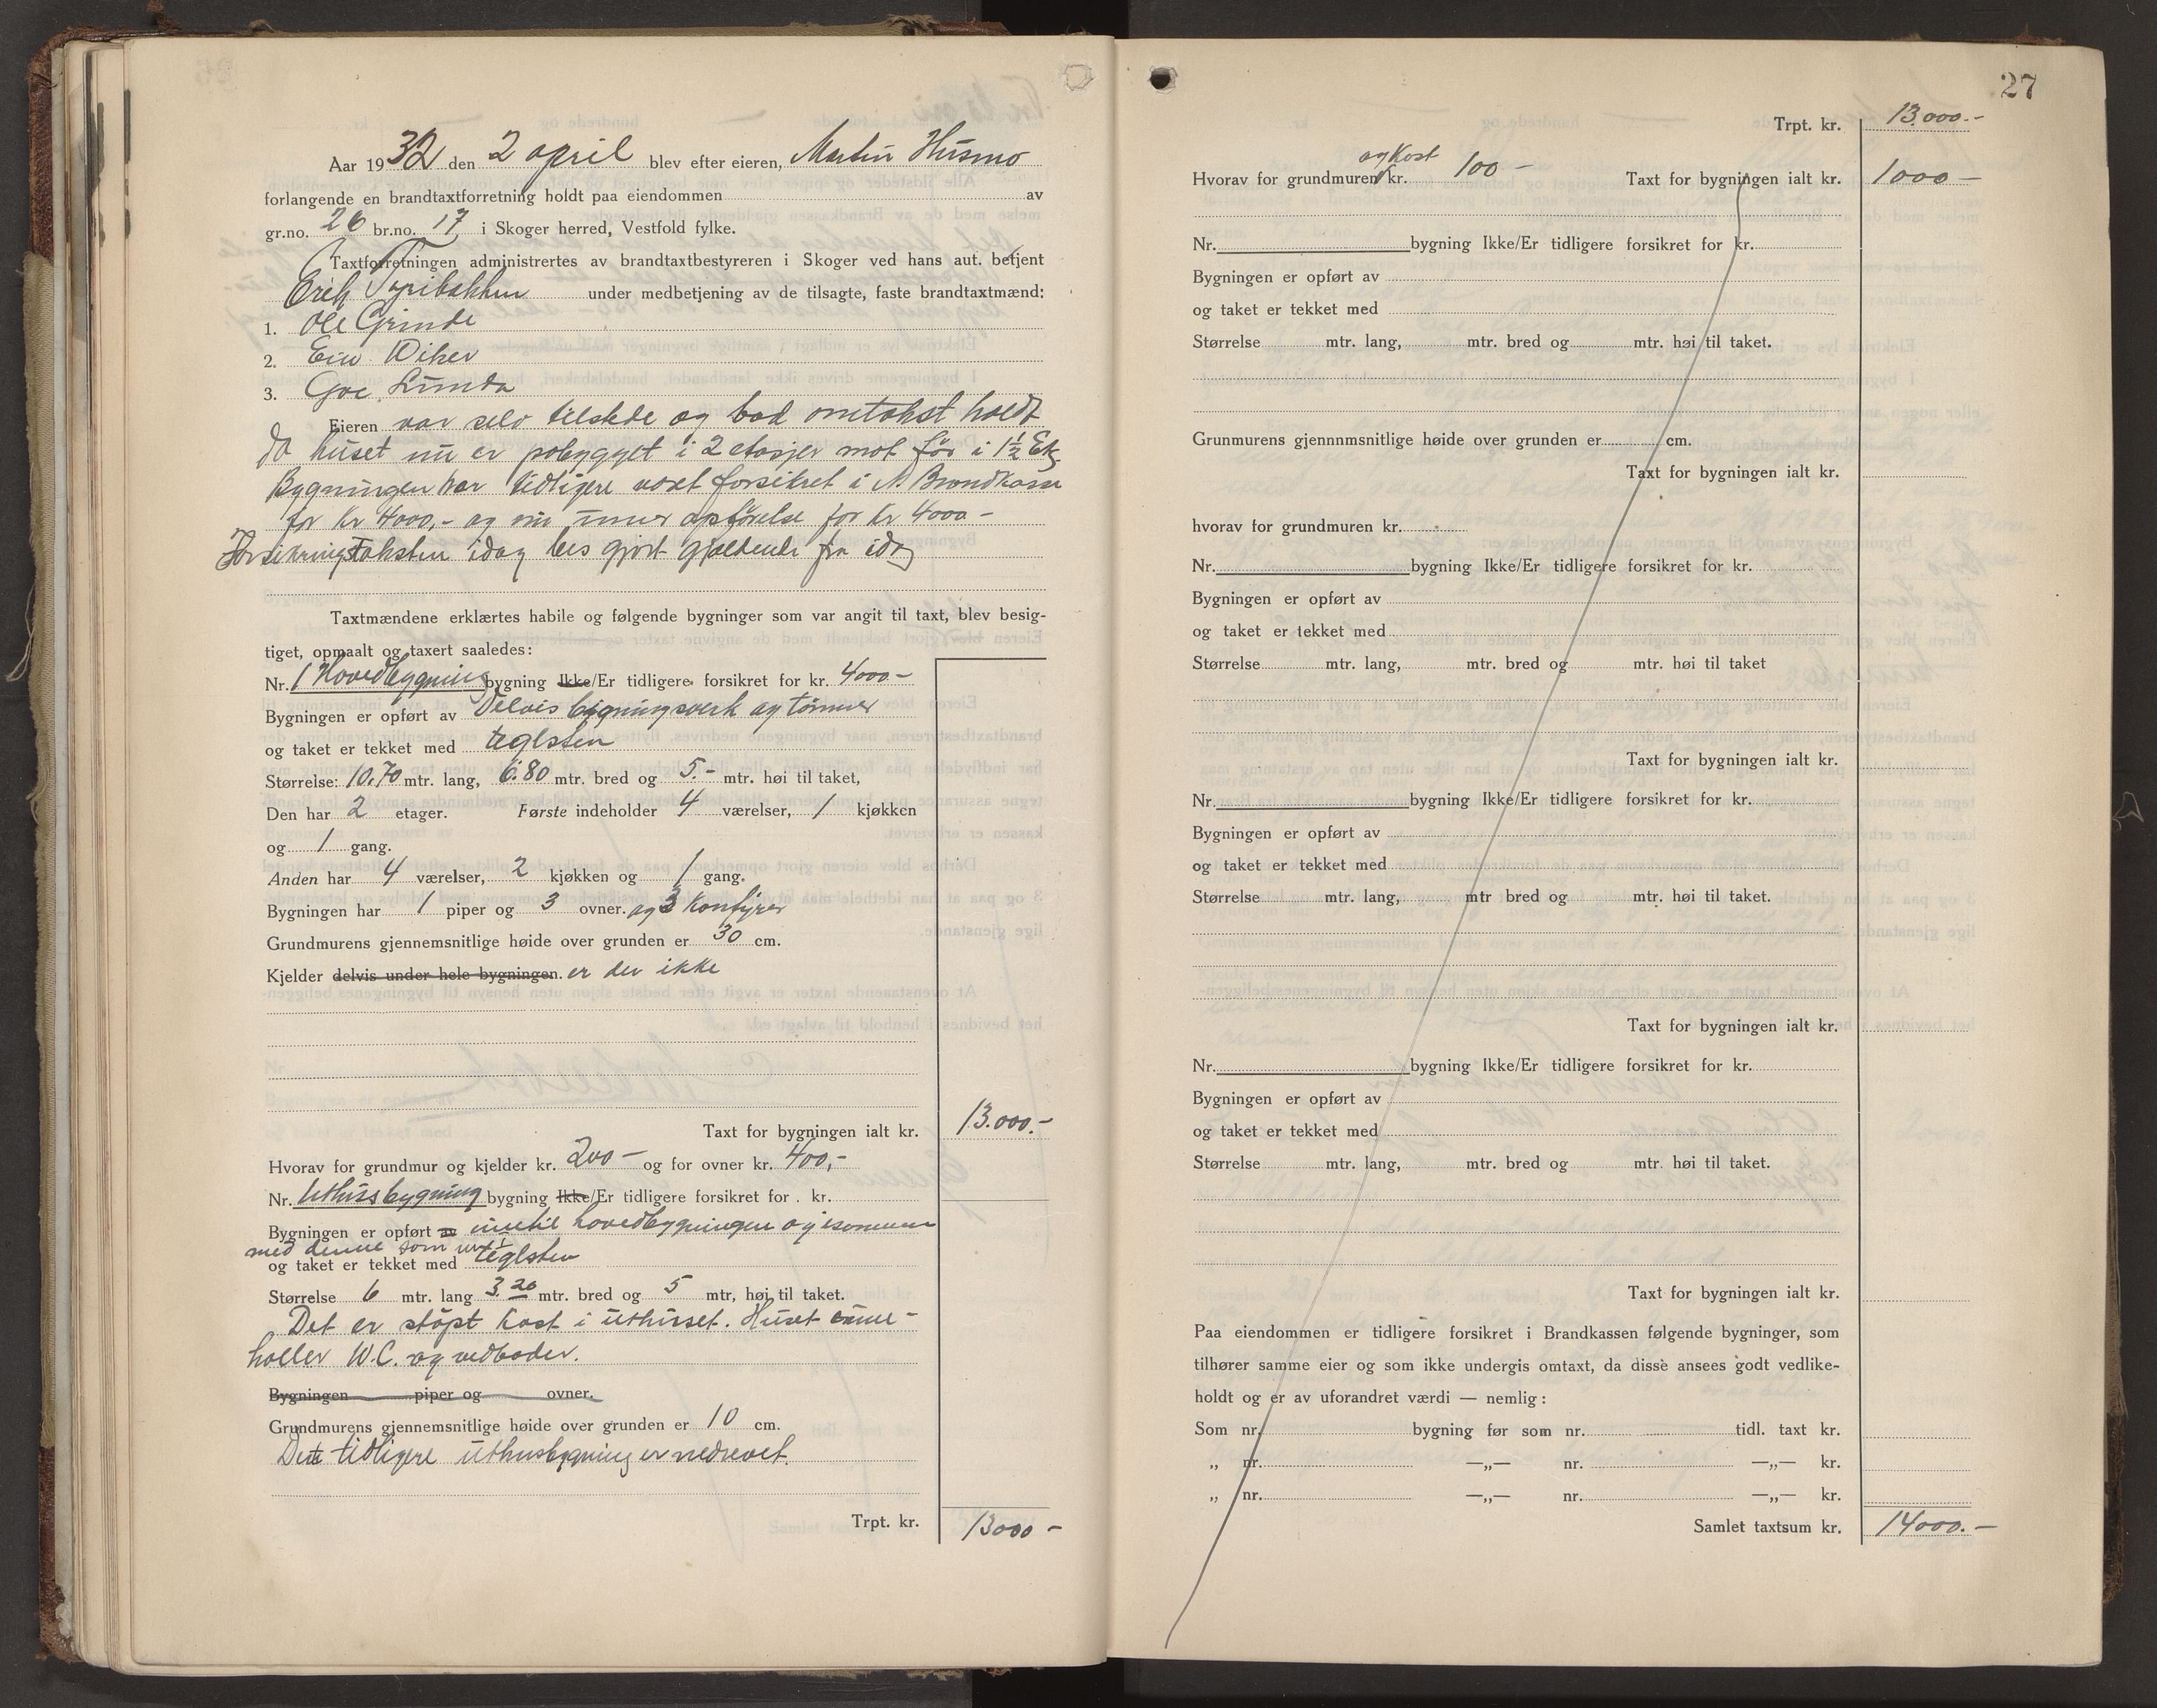 Aar 1932 den 2 april blev efter eieren, Martin Husmo
forlangende en brandtaxtforretning holdt paa eiendommen av
gr.no. 26 br.no. 17 i Skoger herred, Vestfold fylke.
Taxtforretningen administrertes av brandtaxtbestyreren i Skoger ved hans aut. betjent
Erik under medbetjening av de tilsagte, faste brandtaxtmænd:
1. Ole Grinde
2. Ein Wiker
3. Gve. Lunda
Eieren var selv tilstede og bad omtakst holdt
da huset nu er påbygget i 2 etasjer mot før i 1½ Etg
Bygningen har tidligere været forsikret i N. Brandkasse
for kr 4000,- og nu under opförelse for kr 4000 -
Forsikringstaksten idag bes gjort gjældende fra idag
Taxtmændene erklærtes habile og følgende bygninger som var angit til taxt, blev besig-
tiget, opmaalt og taxert saaledes:
Nr. 1 Hovedbygning bygning Ikke/Er tidligere forsikret for kr. 4000 -
Bygningen er opført av delvis bygningsverk og tømmer
og taket er tekket med teglsten
Størrelse: 10,70 mtr. lang, 6.80 mtr. bred og 5.- mtr. høi til taket,
Den har 2 etager. Første indeholder 4 værelser, 1 kjøkken
og 1 gang.
Anden har 4 værelser, 2 kjøkken og 1 gang.
Bygningen har 1 piper og 3 ovner. og 3 Komfyrer
Grundmurens gjennemsnitlige høide over grunden er 30 cm.
Kjelder delvis under hele bygningen. er der ikke
Taxt for bygningen ialt kr. 13.000.-
Hvorav for grundmur og kjelder kr. 200 - og for ovner kr. 400,-
Nr. Uthusbygning bygning Ikke/Er tidligere forsikret for . kr.
Bygningen er opført av inntil hovedbygningen og isammen
med denne som
og taket er tekket med teglsten
Størrelse 6 mtr. lang 3.20 mtr. bred og 5 mtr, høi til taket.
Det er støpt kost i uthuset. Huset inne-
holler W.C. og vedboder.
Bygningen piper og ovner.
Grundmurens gjennemsnitlige høide over grunden er 10 cm.
Dete tidligere uthusbygning er nedrevet.
Trpt. kr. 13000 -
27
Trpt. kr. 13.000.-
og Kost
Hvorav for grundmuren kr. 100 - Taxt for bygningen ialt kr. 1000 -
Nr. bygning Ikke/Er tidligere forsikret for kr.
Bygningen er opført av
og taket er tekket med
Størrelse mtr. lang, mtr. bred og mtr. høi til taket.
Grunmurens gjennnmsnitlige høide over grunden er cm.
Taxt for bygningen ialt kr.
hvorav for grundmuren kr.
Nr. bygning Ikke/Er tidligere forsikret for kr.
Bygningen er opført av
og taket er tekket med
Størrelse mtr. lang, mtr. bred og mtr. høi til taket
Taxt for bygningen ialt kr.
Nr. bygning Ikke/Er tidligere forsikret for kr.
Bygningen er opført av
og taket er tekket med
Størrelse mtr. lang, mtr bred og mtr. høi til taket.
Taxt for bygningen ialt kr.
Nr. bygning Ikke/Er tidligere forsikret for kr.
Bygningen er opført av
og taket er tekket med
Størrelse mtr. lang, mtr. bred og mtr. høi til taket.
Taxt for bygningen ialt kr.
Paa eiendommen er tidligere forsikret i Brandkassen følgende bygninger, som
tilhører samme eier og som ikke undergis omtaxt, da disse ansees godt vedlike-
holdt og er av uforandret værdi — nemlig:
Som nr. bygning før som nr. tidl. taxt kr.
„ nr. —„— nr. —„— kr.
„ nr. —„— nr. —„— kr.
Samlet taxtsum kr. 14000.-